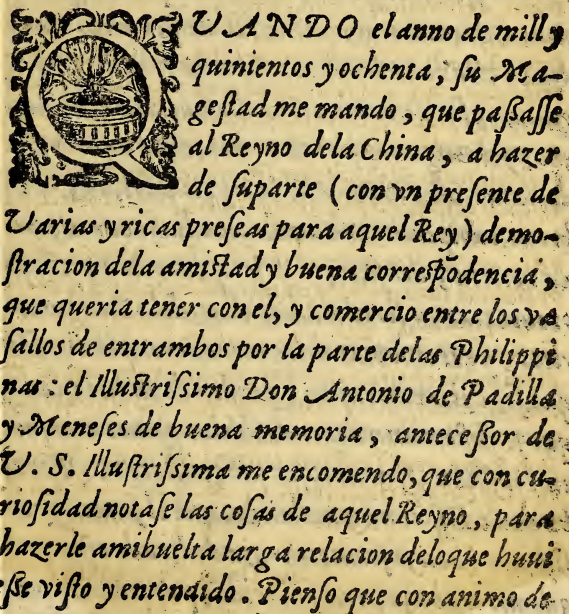 QUANDO el anno de mill y
quinientos y ochenta, ſu Ma-
geſtad me mando, que paßaſſe
al Reyno dela China, a hazer
de ſuparte (con vn preſente de
Varias y ricas preſeas para aquel Rey) demo-
ſtracion dela amiſtad y buena correſpõdencia,
que queria tener con el, y comercio entre los va
ſallos de entrambos por la parte delas Philippi
nas: el Illuſtriſsimo Don Antonio de Padilla
y Meneſes de buena memoria, anteceßor de
V. S. Illuſtriſsima me encomendo, que con cu-
rioſidad notaſe las coſas de aquel Reyno, para
hazerle amibuelta larga relacion deloque huui
eße viſto y entendido. Pienſo que con animo de